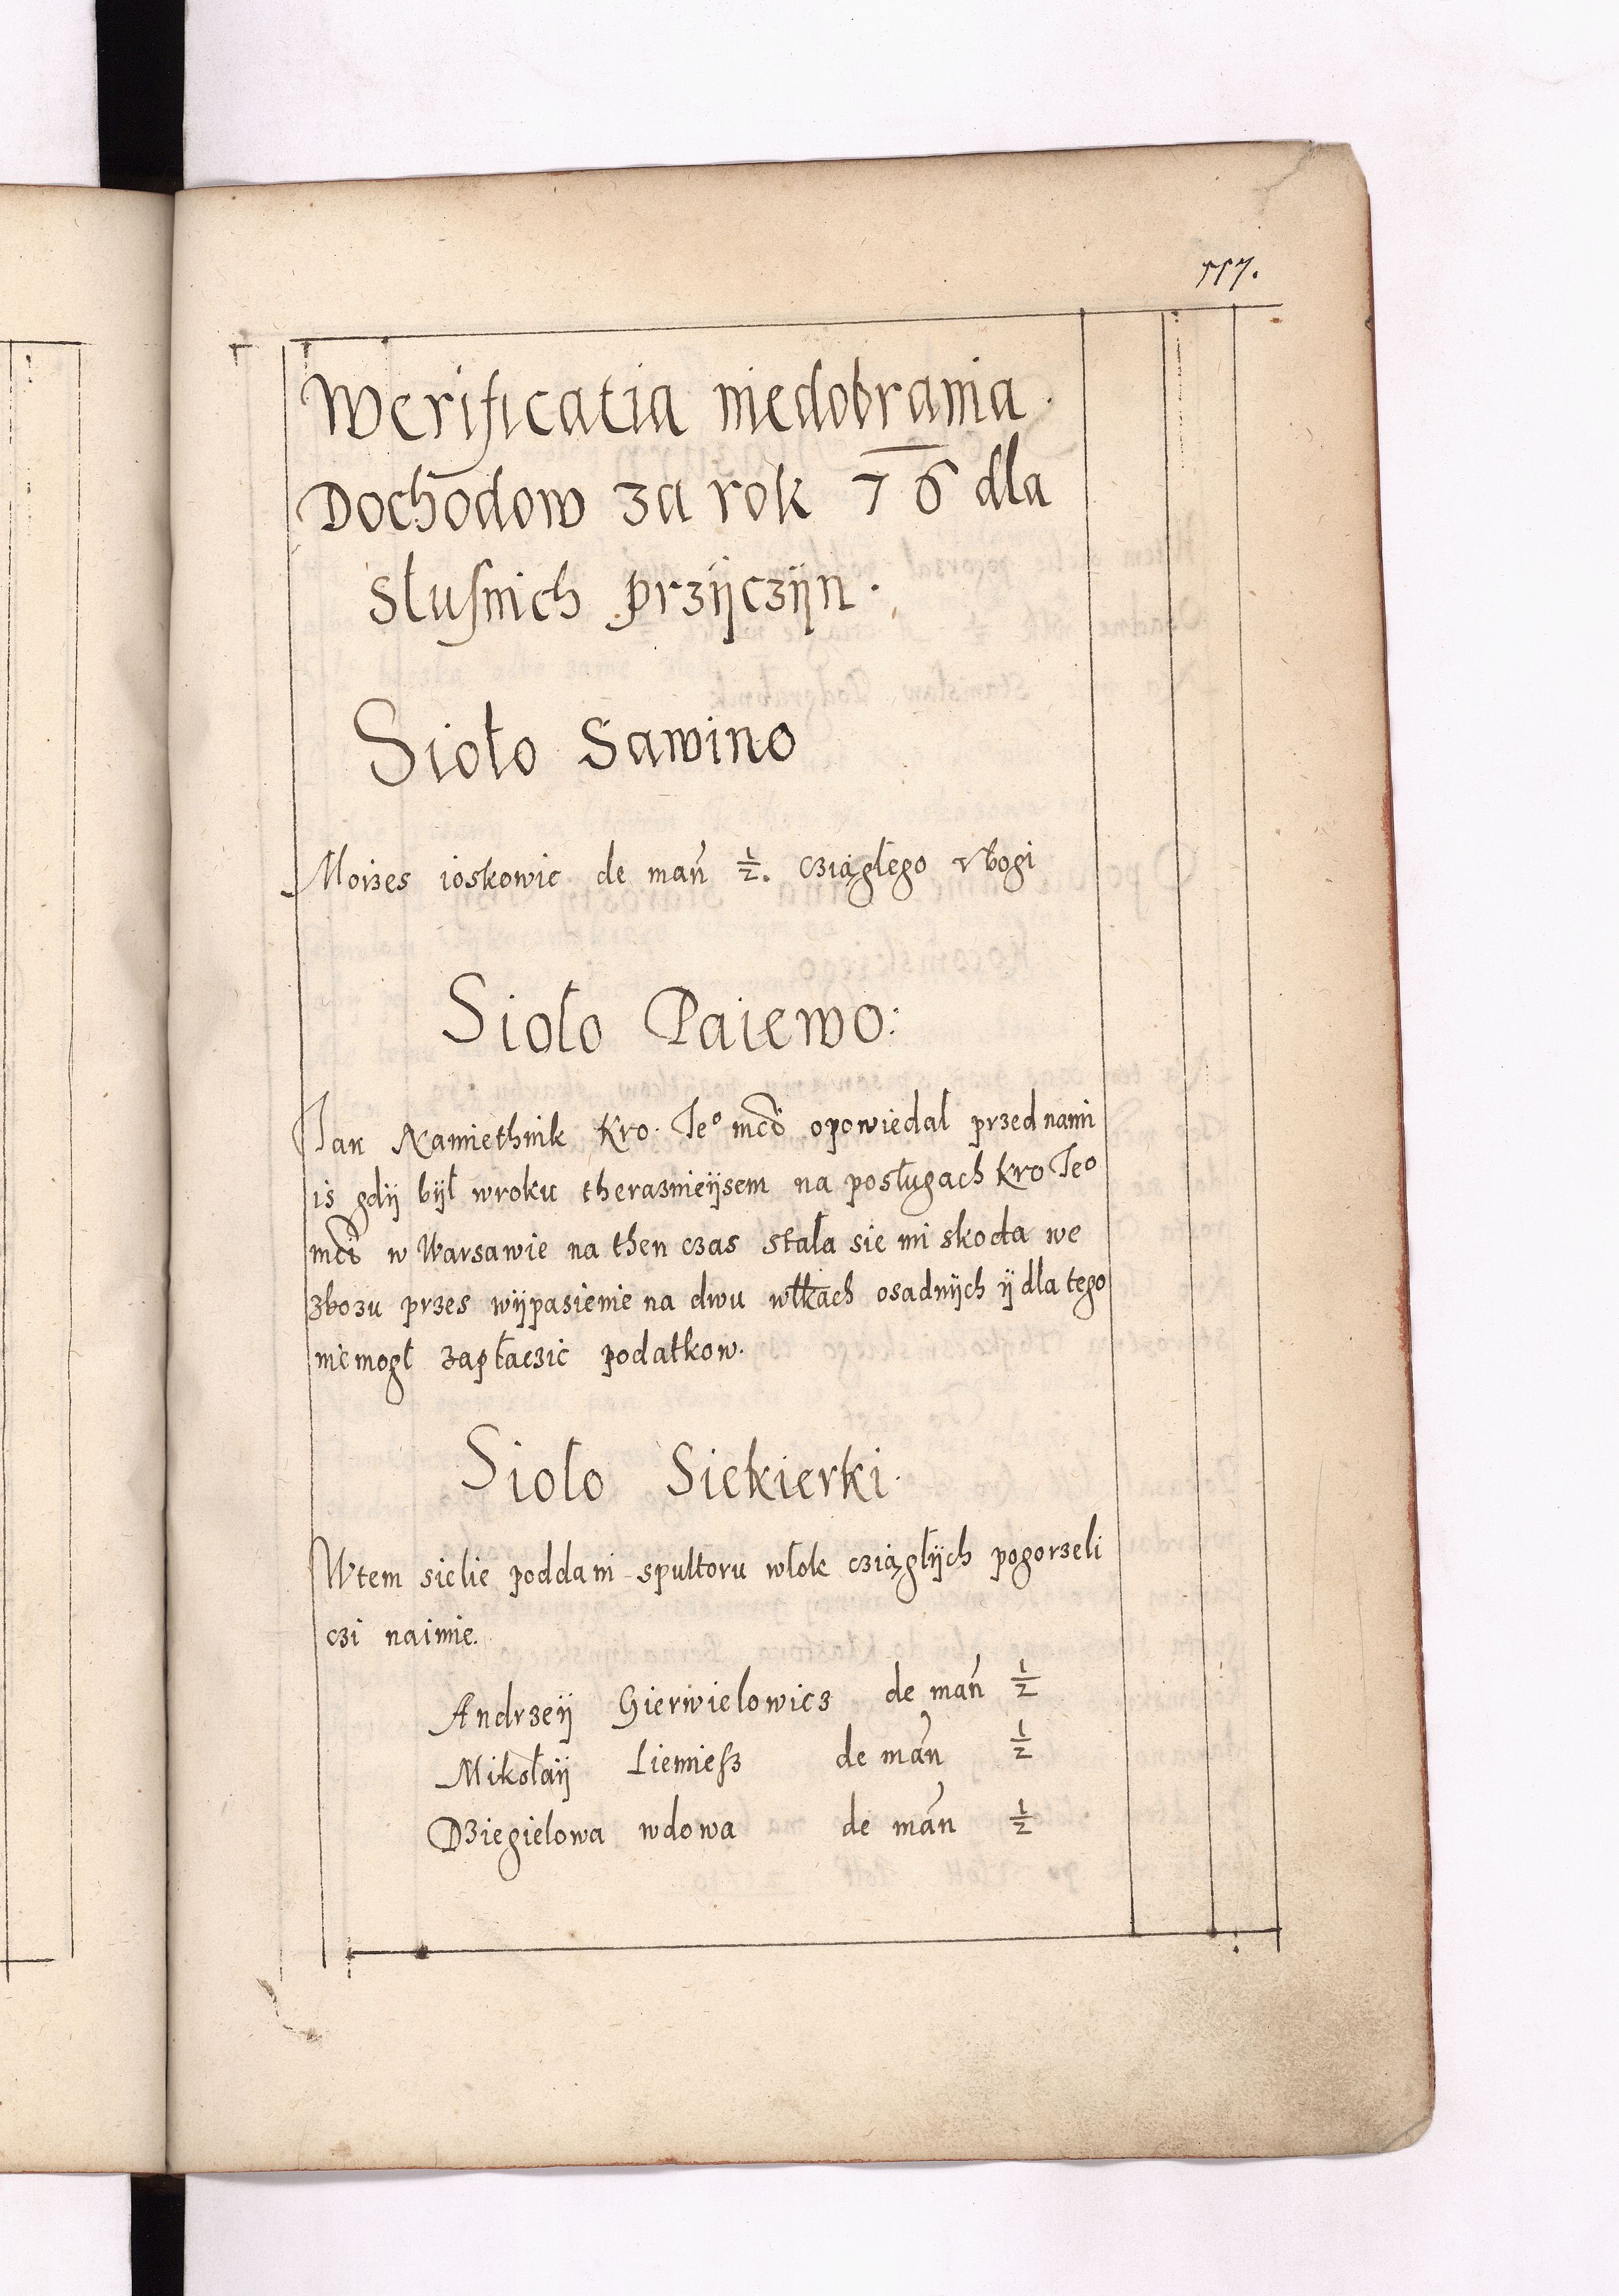 117.
Werificatia niedobrania.
Dochodow za rok 76 dla
Słusnich przÿczÿn.
Sioło Sawino
Moizes ioskowic de man̄ ½. cziągłego vbogi
Sioło Paiewo:
Jan Namiethnik Kro. Jeº mći opowiedal przed nami
is gdÿ bÿł wroku therazmieÿsem na posługach kro Jeº
mći w Warsawie na then czas stała sie mi skoda we
zbozu przes wÿpasienie na dwu włkach osadnÿch ÿ dla tego
niemogł zapłaczic podatkow.
Sioło Siekierki.
Wtem sielie poddani spultoru włok cziągłÿch pogorzeli
czi naimie.
Andrzeÿ Gierwielowicz de man̄ ½
Mikołaÿ Liemiesz de man̄ ½
Dziegielowa wdowa de man̄ ½